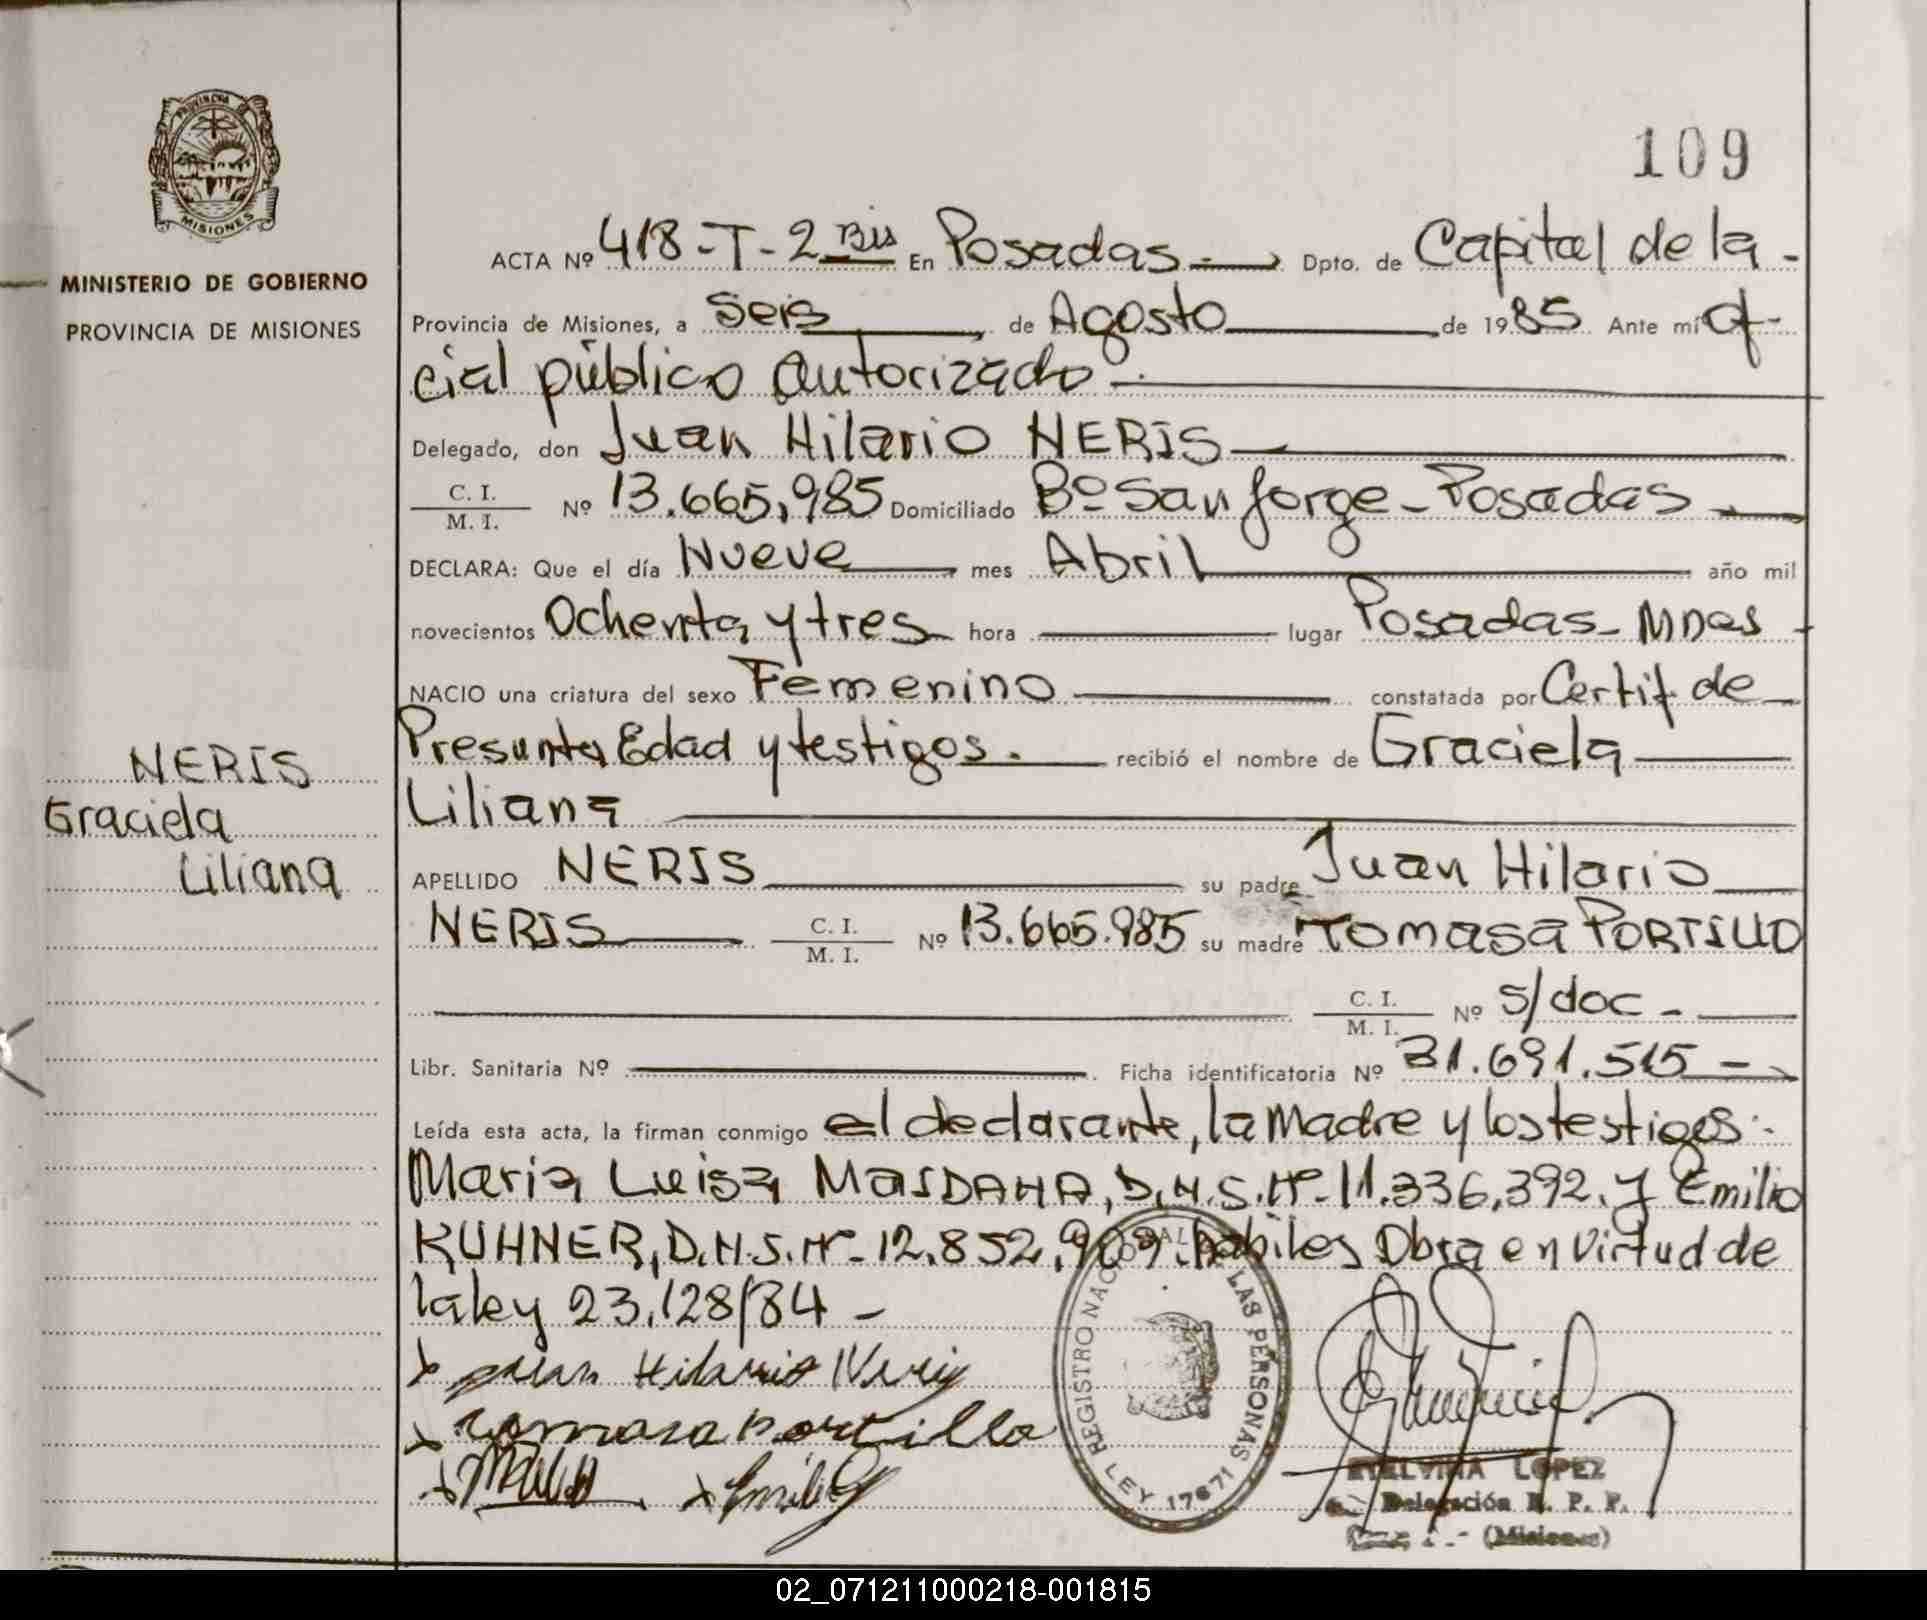 PROVINCIA DE
MISIONES
MINISTERIO DE GOBIERNO
PROVINCIA DE MISIONES
109
ACTA Nº 418-T-2 Bis En Posadas.- Dpto. de Capital de la -
Provincia de Misiones, a Seis de Agosto de 1985 Ante mí ofi-
cial público autorizado.-
Delegado, don Juan Hilario NERIS
C. I. / M. I. Nº 13.665,985 Domiciliado Bº San Jorge - Posadas -
DECLARA: Que el día Nueve mes Abril año mil
novecientos Ochenta y tres hora lugar Posadas - Mnes -
NACIO una criatura del sexo Femenino constatada por Certif de
Presunta Edad y testigos. recibió el nombre de Graciela
Liliana
NERIS
Graciela
Liliana
APELLIDO NERIS su padre Juan Hilario
NERIS C. I. / M. I. Nº 13.665.985 su madre Tomasa PORTILLO
C. I. / M. I. Nº s/doc -
Libr. Sanitaria Nº Ficha identificatoria Nº 31.691.515 -
Leída esta acta, la firman conmigo el declarante, la Madre y los testigos:-
Maria Luisa D.N.I. Nº- 11.336,392. y Emilio
KUHNER, D.N.I. Nº- 12.852,909. habiles Obra en virtud de
la ley 23.128/84 -
x Juan Hilario Neris
x tomasa portillo
x x Emilio
REGISTRO NACIONAL DE LAS PERSONAS
LEY 17671
ETELVINA LOPEZ
Delegación R. P. P.
(Misiones)
02_071211000218-001815